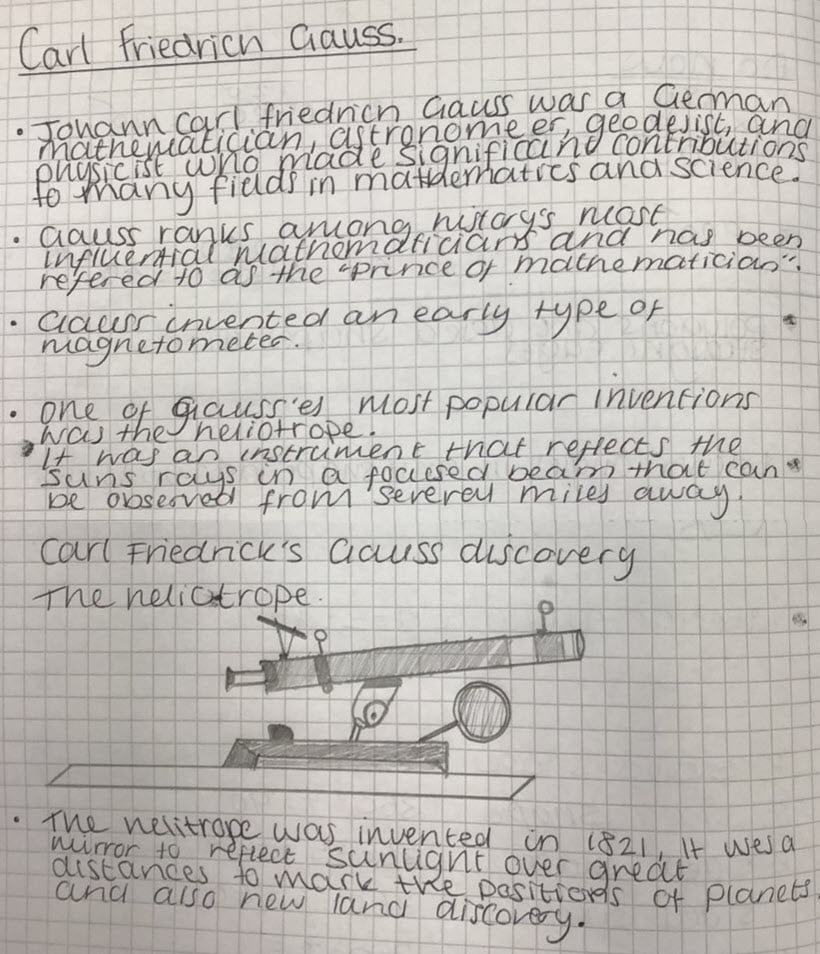 Carl Friedrich Gauss.
• Johann Carl friedrich Gauss was a German
mathematician, astronomeer, geodesist, and
physicist who made significand contributions
to many fields in mathdematics and science.
• Gauss ranks among history's most
influential mathematicians and has been
refered to as the "Prince of mathematician".
• Gauss invented an early type of
magnetometer.
• One of Gauss'es most popular inventions
was the heliotrope.
• It was an instrument that reflects the
suns rays in a focused beam that can
be observed from severel miles away.
Carl Friedrick's Gauss discovery
The heliotrope.
• The helitrope was invented in 1821, It wes a
mirror to reflect sunlight over great
distances to mark the positions of planets
and also new land discovery.